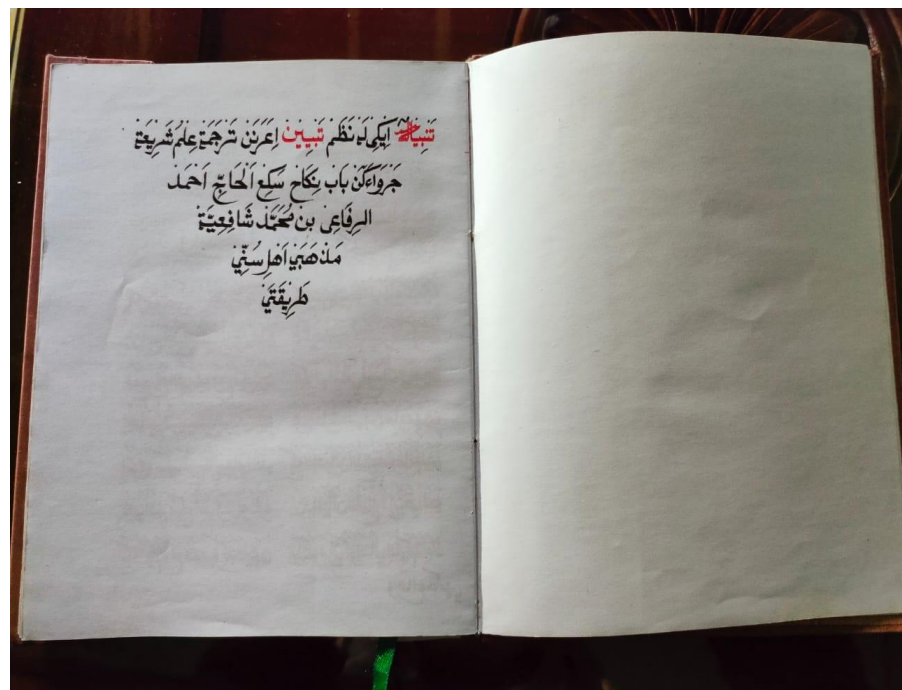 تَنْبِيْهٌ اِيْكِى لَهْ نَظَمْ تَبْيِيْن اِعَرَنَنْ تَرْجَمَةْ عِلْمُ شَرِيْعَةْ
جَرْوَاءَكَنْ بَابْ نِكَاحْ سَكِعْ اَلْحَاجِّ اَحْمَدْ
الرِفَاعِى بِنْ مُحَمَّدْ شَافِعِيَّةْ
مَذْهَبَيْ اَهْلِ سُنِّيْ
طَرِيْقَتَيْ